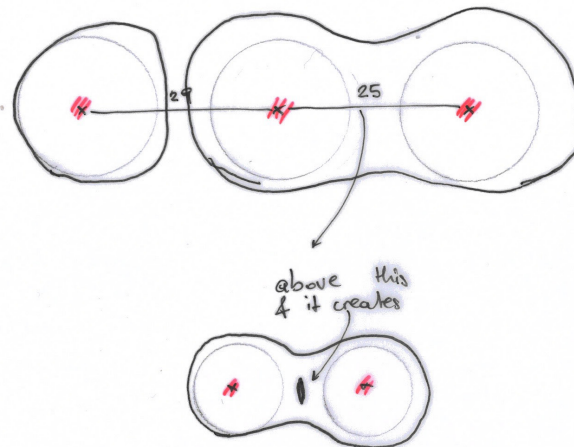 29
25
@bove this
& it creates